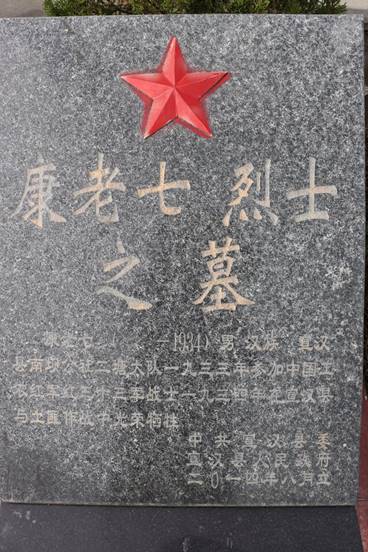 康老七 烈士
之墓
康老七(  -1934) 男 汉族 宣汉
县南坝公社二塘大队一九三三年参加中国工
农红军红三十三军战士一九三四年在宣汉县
与土匪作战中光荣牺牲
中共宣汉县委
宣汉县人民政府
二〇一四年八月立